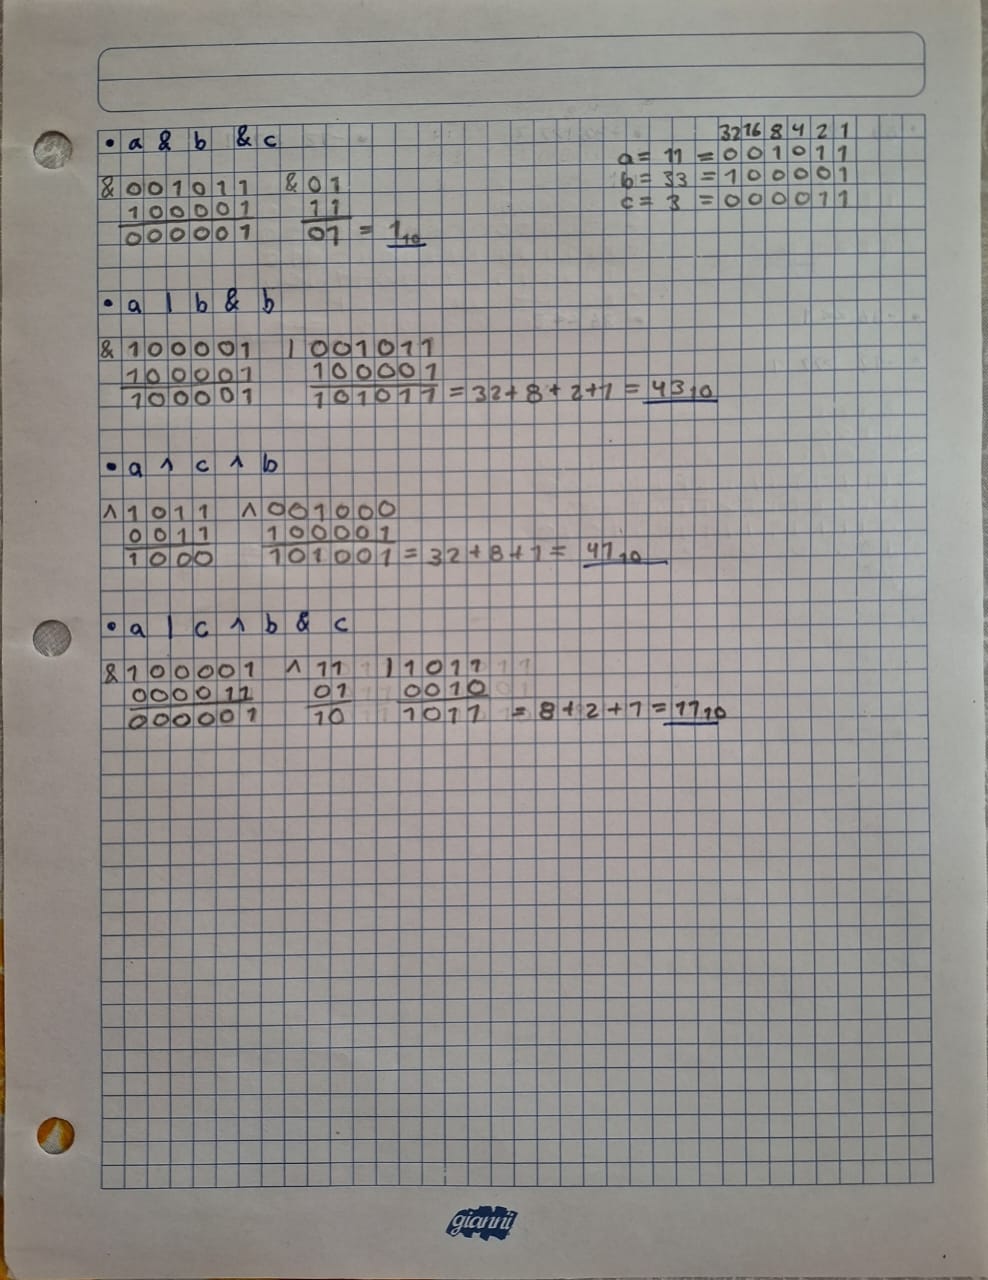 • a & b & c
32 16 8 4 2 1
a = 11 = 0 0 1 0 1 1
b = 33 = 1 0 0 0 0 1
c = 3 = 0 0 0 0 1 1
& 0 0 1 0 1 1 & 0 1
1 0 0 0 0 1 1 1
0 0 0 0 0 1 01 = 1₁₀
• a | b & b
& 1 0 0 0 0 1 | 0 0 1 0 1 1
1 0 0 0 0 1 1 0 0 0 0 1
1 0 0 0 0 1 1 0 1 0 1 1 = 32 + 8 + 2 + 1 = 43₁₀
• a ^ c ^ b
^ 1 0 1 1 ^ 0 0 1 0 0 0
0 0 1 1 1 0 0 0 0 1
1 0 0 0 1 0 1 0 0 1 = 32 + 8 + 1 = 41₁₀
• a | c ^ b & c
& 1 0 0 0 0 1 ^ 1 1 | 1 0 1 1
0 0 0 0 1 1 0 1 0 0 1 0
0 0 0 0 0 1 1 0 1 0 1 1 = 8 + 2 + 1 = 11₁₀
gianni